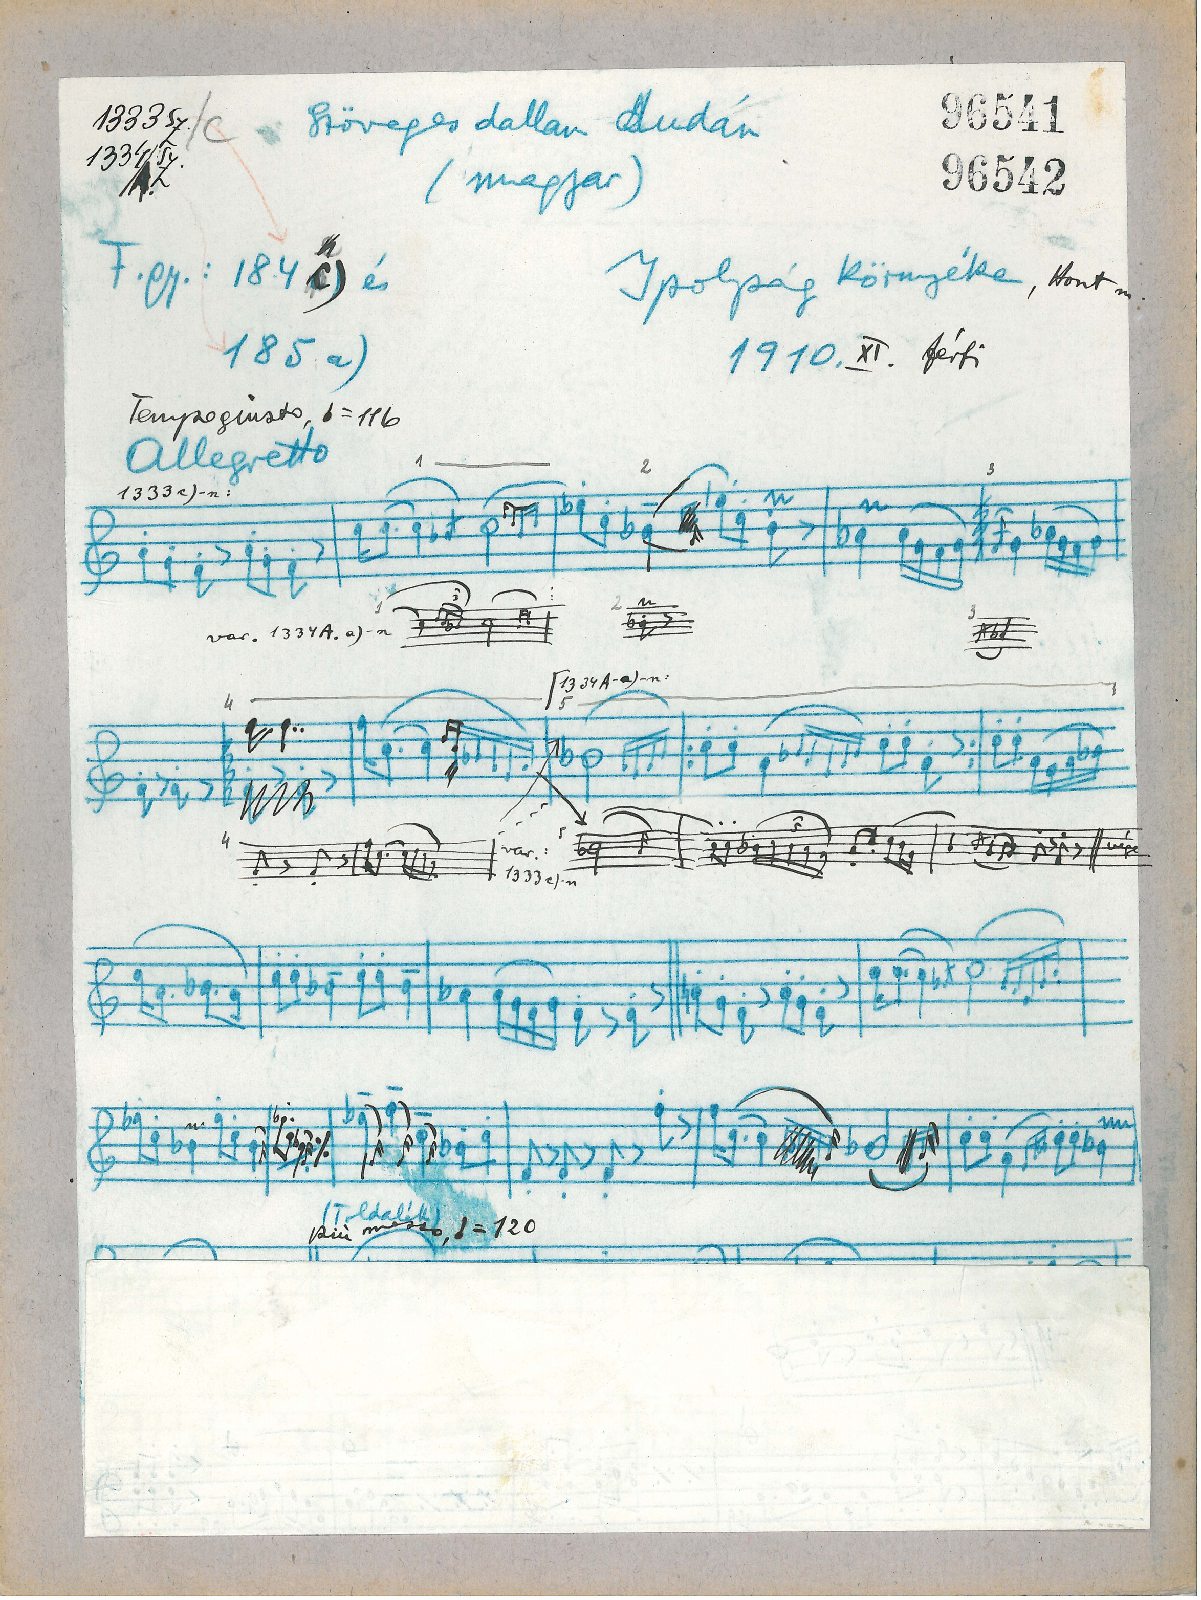 1333 Sz/c
1334/Sz.
A.Z
Szöveges dallam dudán
(magyar)
96541
96542
F. gy.: 184 c) és
185 a)
Ipolyság környéke, Hont m.
1910. XI. férfi
Tempo giusto, = 116
Allegretto
1333 c)-n:
1
2
3
1
var. 1334A. a)-n
3
2
3
4
[1334A-a)-n:
5
4
var.:
1333c)-n
5
5
vége
(Toldalék)
più mosso, = 120